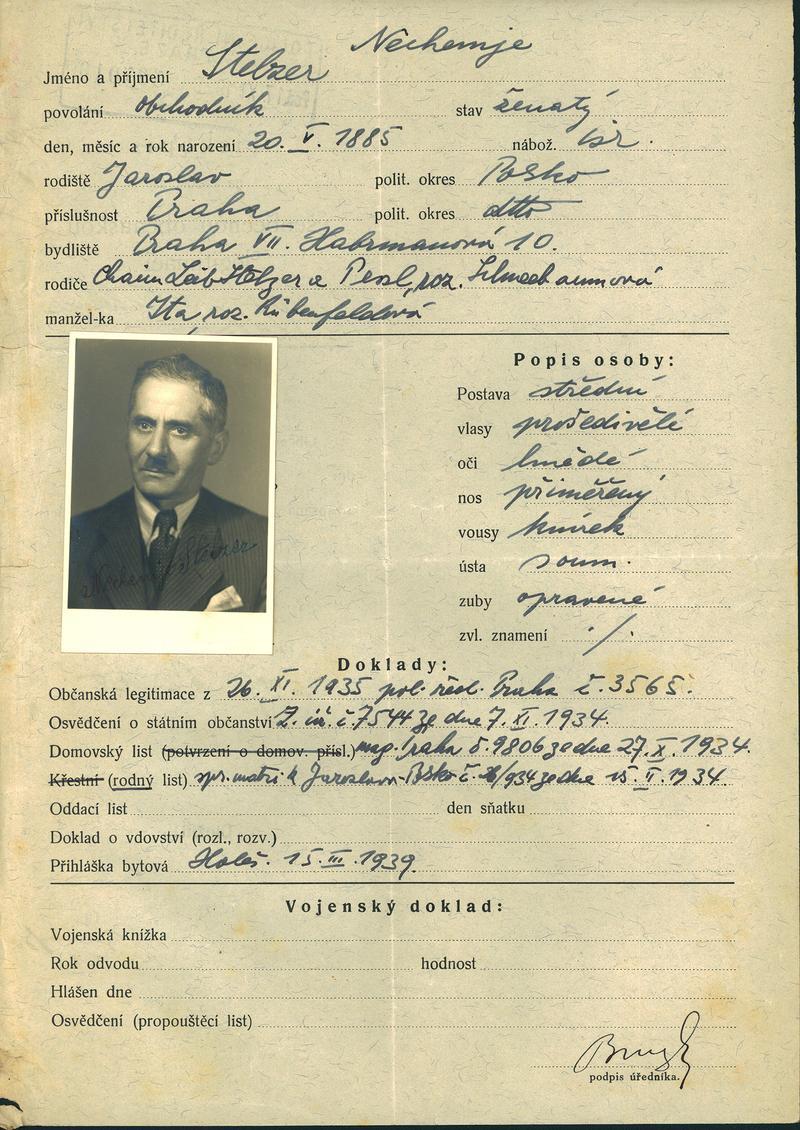 Nechemje
Jméno a příjmení Stelzer
povolání obchodník stav ženatý
den, měsíc a rok narození 20. V. 1885 nábož. isr.
rodiště Jaroslav polit. okres Polsko
příslušnost Praha polit. okres dtto
bydliště Praha VII. Habrmanová 10.
rodiče Chaim Leib Stelzer a Pesl, roz.
manžel-ka Ita, roz. Rubenfeldová
Popis osoby:
Postava střední
vlasy prošedivělé
oči hnědé
nos přiměřený
vousy knírek
ústa soum.
zuby opravené
zvl. znamení ./.
Nechemje Stelzer
Doklady:
Občanská legitimace z 26. XI. 1935 pol. řed. Praha č. 3565.
Osvědčení o státním občanství Z. úř. č. 7544 ze dne 7. XI. 1934.
Domovský list (potvrzení o domov. přísl.) mag. Praha č. 9806 ze dne 27. X. 1934.
Křestní (rodný list) spr. matrik Jaroslav - Polsko ze dne 15. II. 1934.
Oddací list den sňatku
Doklad o vdovství (rozl., rozv.)
Přihláška bytová Holeš. 15. III. 1939.
Vojenský doklad:
Vojenská knížka
Rok odvodu hodnost
Hlášen dne
Osvědčení (propouštěcí list)
podpis úředníka.